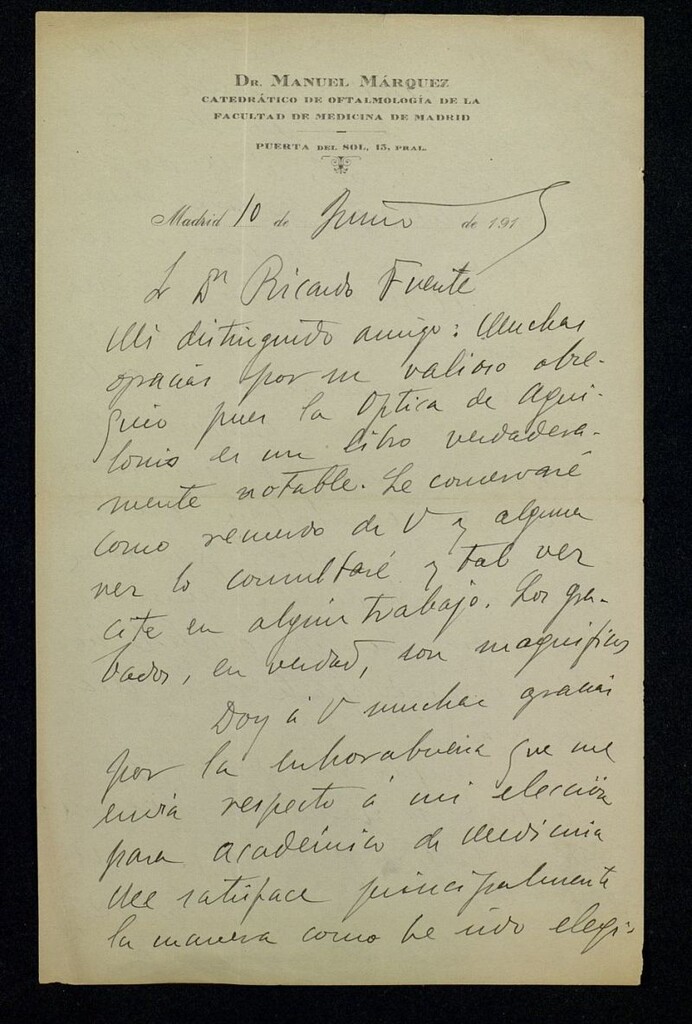 DR. MANUEL MÁRQUEZ
CATEDRÁTICO DE OFTALMOLOGÍA DE LA
FACULTAD DE MEDICINA DE MADRID
PUERTA DEL SOL, 15, PRAL.
Madrid 10 de Junio de 1915
Sr Dn Ricardo Fuente
Mi distinguido amigo: Muchas
gracias por su valioso obse-
quio pues la Optica de Agui-
lonio es un libro verdadera-
mente notable. Le conservaré
como recuerdo de V y alguna
vez lo consultaré y tal vez
cite en algun trabajo. Los gra-
bados, en verdad, son magnificos
Doy á V muchas gracias
por la enhorabuena que me
envia respecto á mi elección
para académico de Medicina
Me satisface principalmente
la manera como he sido elegi-